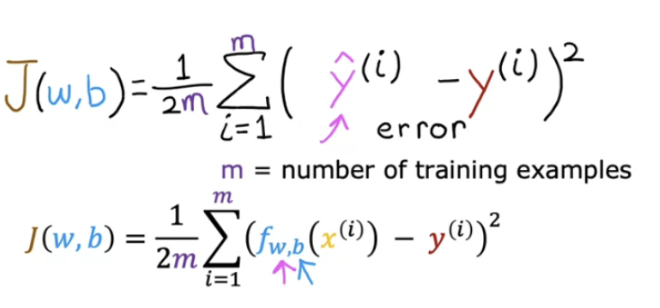 J(w,b) = 1/2m m∑i=1 ( ŷ⁽ⁱ⁾ - y⁽ⁱ⁾ )²
error
m = number of training examples
J(w, b) = 1/2m m∑i=1 (f_w,b(x⁽ⁱ⁾) − y⁽ⁱ⁾)²